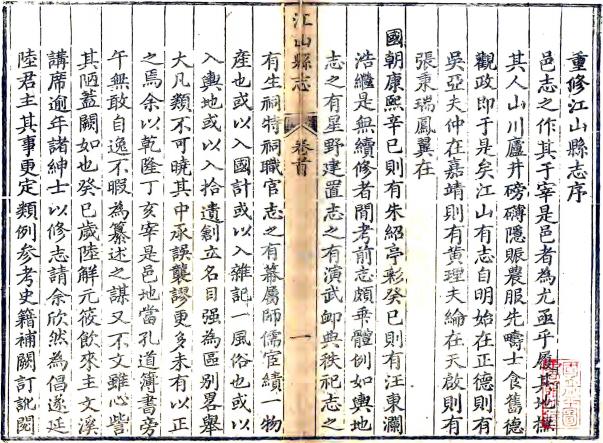 重修江山縣志序
邑志之作其于宰是邑者為尤亟乎履其地
其人山川廬井磅礴隱賑農服先疇士食舊德
觀政即于是矣江山有志自明始在正德則有
吳亞夫仲在嘉靖則有黃理夫綸在天啟則有
張秉瑞鳳翼在
國朝康熙辛巳則有朱綵亭彩癸巳則有汪東瀾
浩繼是無續修者閒考前志頗乖體例如輿地
志之有星野建置志之有演武卹典秩祀志之
江山縣志
卷首
一
有生祠特祠職官志之有幕屬師儒宦績一物
產也或以入國計或以入雜記一風俗也或以
入輿地或以入拾遺創立名目強為區別畧舉
大凡類不可曉其中承誤襲謬更多未有以正
之焉余以乾隆丁亥宰是邑地當孔道簿書旁
午無敢自逸不暇為纂述之謀又不文雖心訾
其陋蓋闕如也癸巳歲陸解元筱飲來主文溪
講席逾年諸紳士以修志請余欣然為倡遂延
陸君主其事更定類例參考史籍補闕訂訛閱